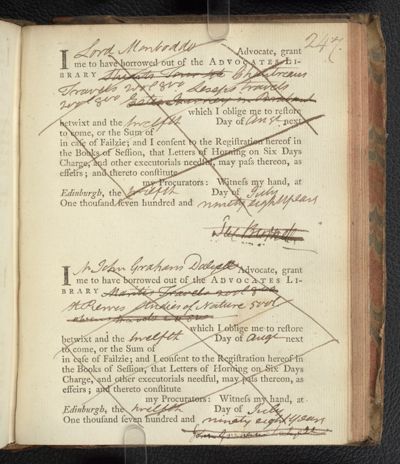 247.
I Lord Monboddo Advocate, grant
me to have borrowed out of the ADVOCATES LI-
BRARY
Travels 2 vol 8vo Travels
2 vol 8vo
which I oblige me to reſtore
betwixt and the twelfth Day of Augt next
to come, or the Sum of
in caſe of Failzie; and I conſent to the Regiſtration hereof in
the Books of Seſſion, that Letters of Horning on Six Days
Charge, and other executorials needful, may paſs thereon, as
effeirs; and thereto conſtitute
my Procurators: Witneſs my hand, at
Edinburgh, the twelfth Day of July
One thouſand ſeven hundred and ninety eight years
I Mr John Graham Dalyell Advocate, grant
me to have borrowed out of the ADVOCATES LI-
BRARY Travels
St Pierres Studies of Nature 5 vol
which I oblige me to reſtore
betwixt and the twelfth Day of Augt next
to come, or the Sum of
in caſe of Failzie; and I conſent to the Regiſtration hereof in
the Books of Seſſion, that Letters of Horning on Six Days
Charge, and other executorials needful, may paſs thereon, as
effeirs; and thereto conſtitute
my Procurators: Witneſs my hand, at
Edinburgh, the twelfth Day of July
One thouſand ſeven hundred and ninety eight years